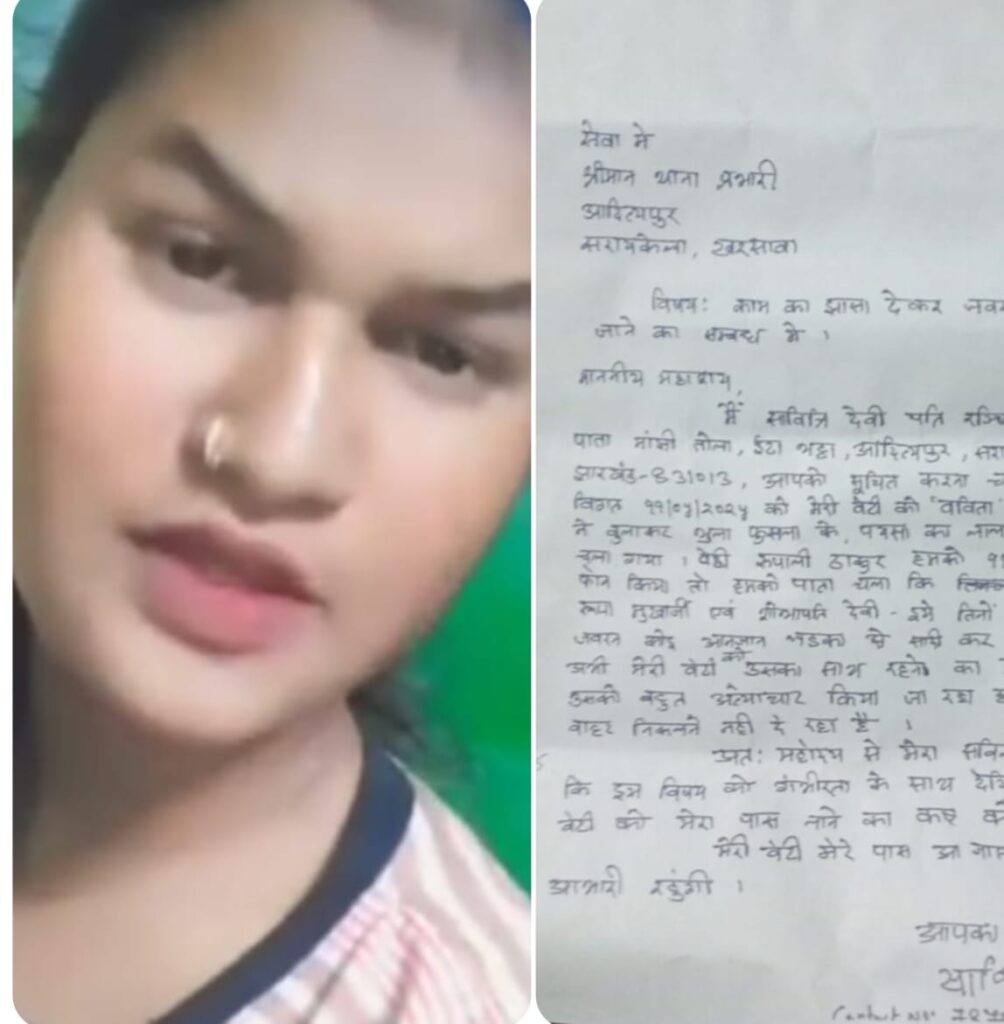 सेवा में
श्रीमान थाना प्रभारी
आदित्यपुर
सरायकेला, खरसावा
विषय: काम का झासा देकर जबर
जाने का सम्बन्ध में ।
माननीय महाशय,
मैं सावित्रि देवी पति
पाता मांझी टोला, ईटा भट्ठा, आदित्यपुर, सरा
झारखंड-831013, आपको सूचित करना च
विगत 11/05/2025 को मेरी बेटी को "बबिता
ने बुलाकर भुला फुसला के, पयसा का लाल
चला गया । बेटी रुपाली ठाकुर हमको 11
फोन किया तो हमको पाता चला कि
रूपा मुखर्जी एवं देवी - इमे तिनों
जबरन कोइ आनजान लडका से सादि कर
अभी मेरी बेटी को उसका साथ रहने का
उसको बहुत अत्याचार किया जा रहा है
बाहर निकलने नही दे रहा है ।
अत: महोदय से मेरा सविन
कि इस विषय को गंभीरता के साथ देखि
बेटी को मेरा पास लाने का कष्ट करे
मेरी बेटी मेरे पास आ जाय
आभारी रहुंगी ।
आपका
सावि
Contact No: